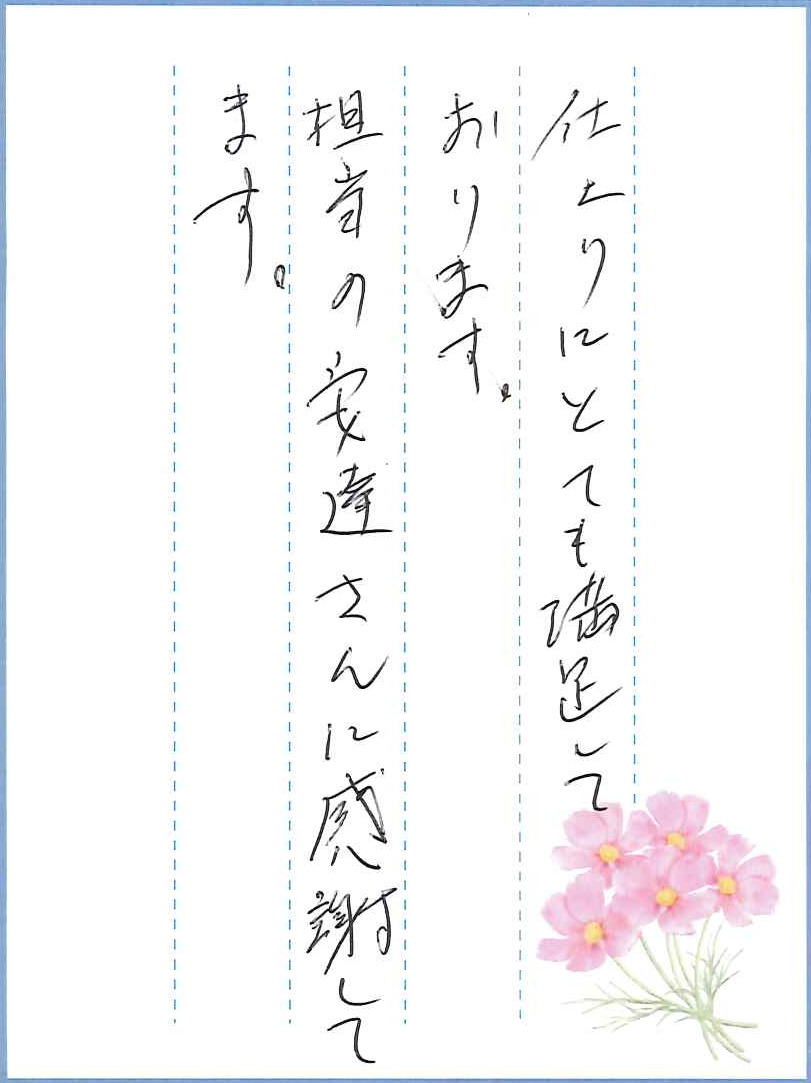 仕上りにとても満足して
おります。
担当の安達さんに感謝して
ます。